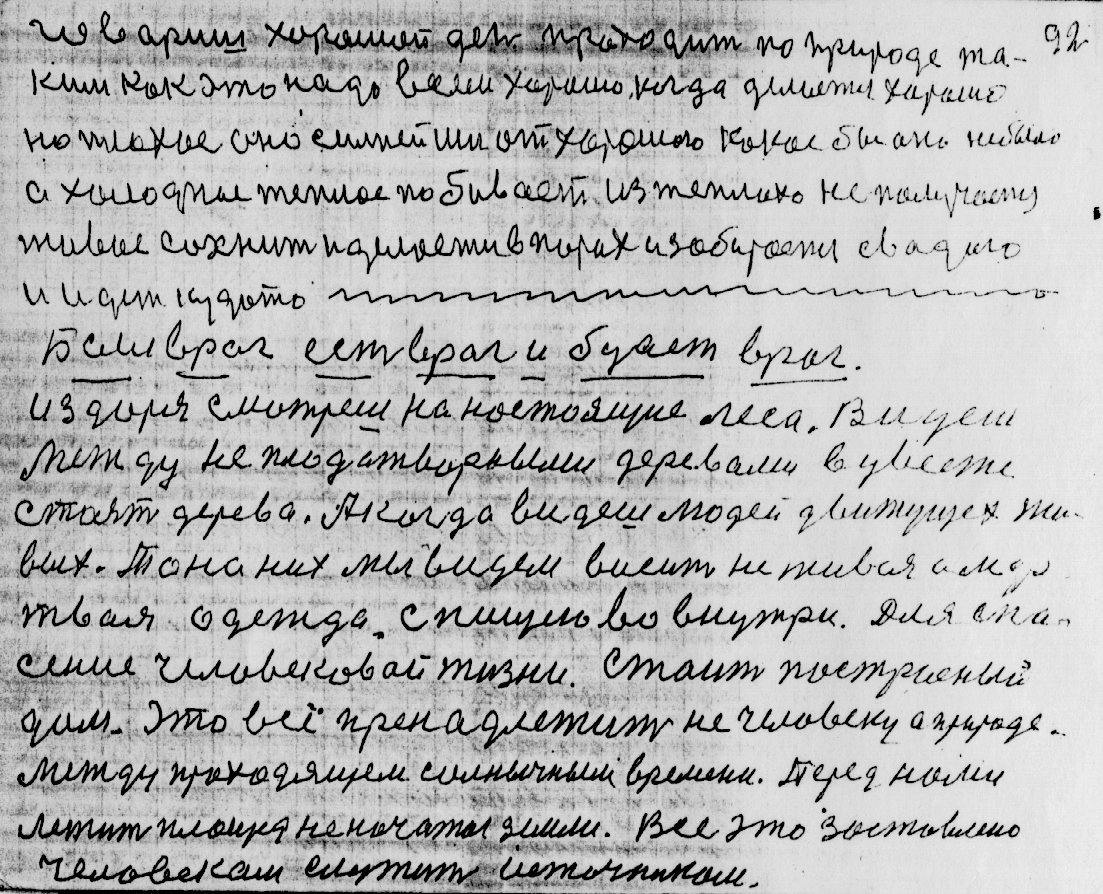 говариш хороший ден проходит по природе та- 92
ким как это надо всем хорошо, когда делается хорошо
но плохое оно сильнейши от хорошого какое бы оно небыло
а холодное теплое побывает из теплохо не получается
живое сохнит и делается в порах изобирается
и идет кудато
Был враг ест враг и будет враг.
из доря смотреш на настоящие леса. Видеш
между не плодотворными деревами в цвете
стоят дерева. А когда видеш людей движущех жи-
вых. То на них мы видем висит не живая а мер
твая одежда. с пищую во внутри. Для спа-
сение человековой жизни. Стоит построеный
дом. Это всё пренадлежит не человеку а природе.
между проходящем солнычным времени. Перед нами
лежит площяд неначатои земли. Все это заставлено
человекам служит источником.